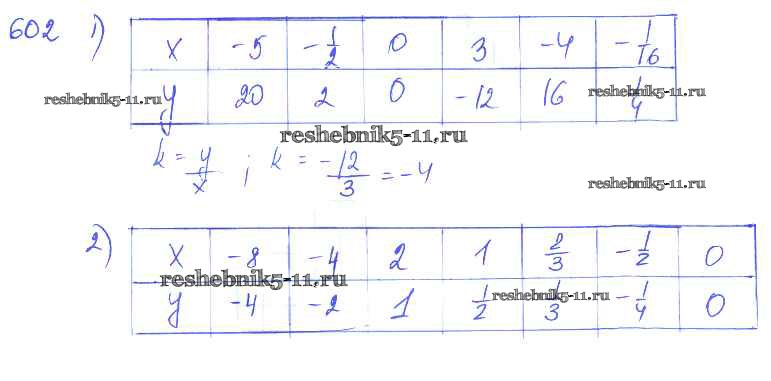 602 1)
x -5 -1/2 0 3 -4 -1/16
y 20 2 0 -12 16 1/4
reshebnik5-11.ru reshebnik5-11.ru
reshebnik5-11.ru
k = y/x ; k = -12/3 = -4
reshebnik5-11.ru
2)
x -8 -4 2 1 2/3 -1/2 0
reshebnik5-11.ru
y -4 -2 1 1/2 1/3 -1/4 0
reshebnik5-11.ru